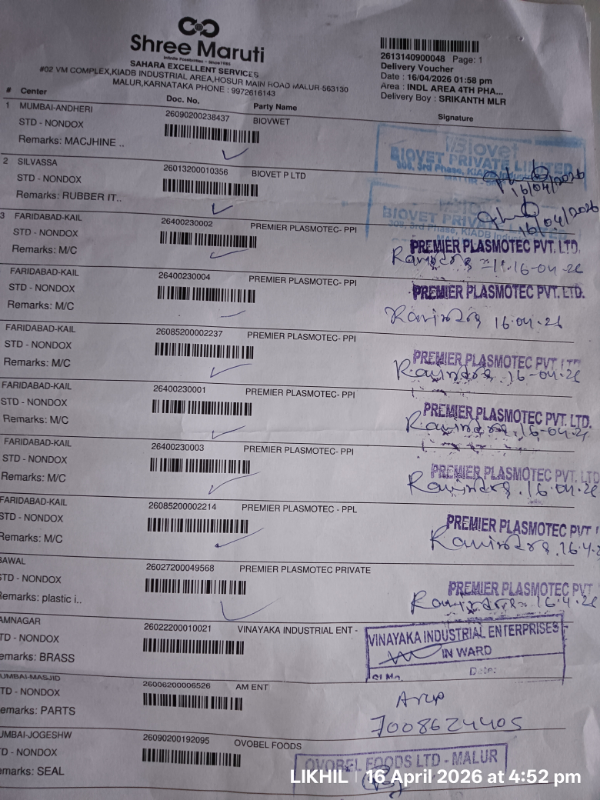 Shree Maruti
SAHARA EXCELLENT SERVICES
#02 VM COMPLEX,KIADB INDUSTRIAL AREA,HOSUR MAIN ROAD MALUR-563130
MALUR,KARNATAKA PHONE : 9972616143
2613140900048 Page: 1
Delivery Voucher
Date : 16/04/2026 01:58 pm
Area : INDL AREA 4TH PHA...
Delivery Boy : SRIKANTH MLR
# Center Doc. No. Party Name Signature
1 MUMBAI-ANDHERI 26090200238437 BIOVWET
STD - NONDOX
Remarks: MACJHINE ..
Biovet
BIOVET PRIVATE LIMITED
16/04/2026
2 SILVASSA 26013200010356 BIOVET P LTD
STD - NONDOX
Remarks: RUBBER IT..
BIOVET PRIV
16/04/2026
3 FARIDABAD-KAIL 26400230002 PREMIER PLASMOTEC- PPI
STD - NONDOX
Remarks: M/C
PREMIER PLASMOTEC PVT. LTD.
16-04-26
FARIDABAD-KAIL 26400230004 PREMIER PLASMOTEC- PPI
STD - NONDOX
Remarks: M/C
PREMIER PLASMOTEC PVT. LTD.
Ravindra 16.04.26
FARIDABAD-KAIL 26085200002237 PREMIER PLASMOTEC- PPI
STD - NONDOX
Remarks: M/C
PREMIER PLASMOTEC PVT LTD
Ravindra. 16-04-26
FARIDABAD-KAIL 26400230001 PREMIER PLASMOTEC- PPI
STD - NONDOX
Remarks: M/C
PREMIER PLASMOTEC PVT. LTD.
Ravindra. 16-04-26
FARIDABAD-KAIL 26400230003 PREMIER PLASMOTEC- PPI
STD - NONDOX
Remarks: M/C
PREMIER PLASMOTEC PVT. LTD
Ravindra. 16.04.26
FARIDABAD-KAIL 26085200002214 PREMIER PLASMOTEC - PPL
STD - NONDOX
Remarks: M/C
PREMIER PLASMOTEC PVT
Ravindra. 16.4.2
BAWAL 26027200049568 PREMIER PLASMOTEC PRIVATE
STD - NONDOX
Remarks: plastic i..
PREMIER PLASMOTEC PVT.
Ravindra 16.4.26
AMNAGAR 26022200010021 VINAYAKA INDUSTRIAL ENT -
STD - NONDOX
emarks: BRASS
VINAYAKA INDUSTRIAL ENTERPRISES
IN WARD
Date:
UMBAI-MASJID 26006200006526 AM ENT
STD - NONDOX
emarks: PARTS
7008624405
UMBAI-JOGESHW 26090200192095 OVOBEL FOODS
STD - NONDOX
emarks: SEAL
OVOBEL FOODS LTD - MALUR
LIKHIL | 16 April 2026 at 4:52 pm